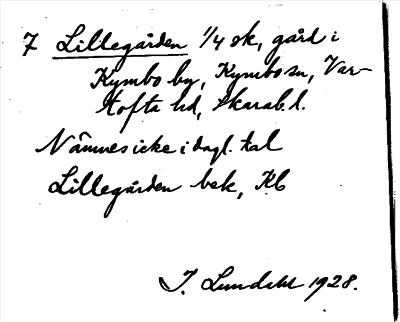 7 Lillegården 1/4 sk, gård i
Kymbo by, Kymbo sn, Var-
tofta hd, Skarab. l.
Nämnes icke i dagl. tal
Lillegården bek, Kb
I. Lundahl 1928.